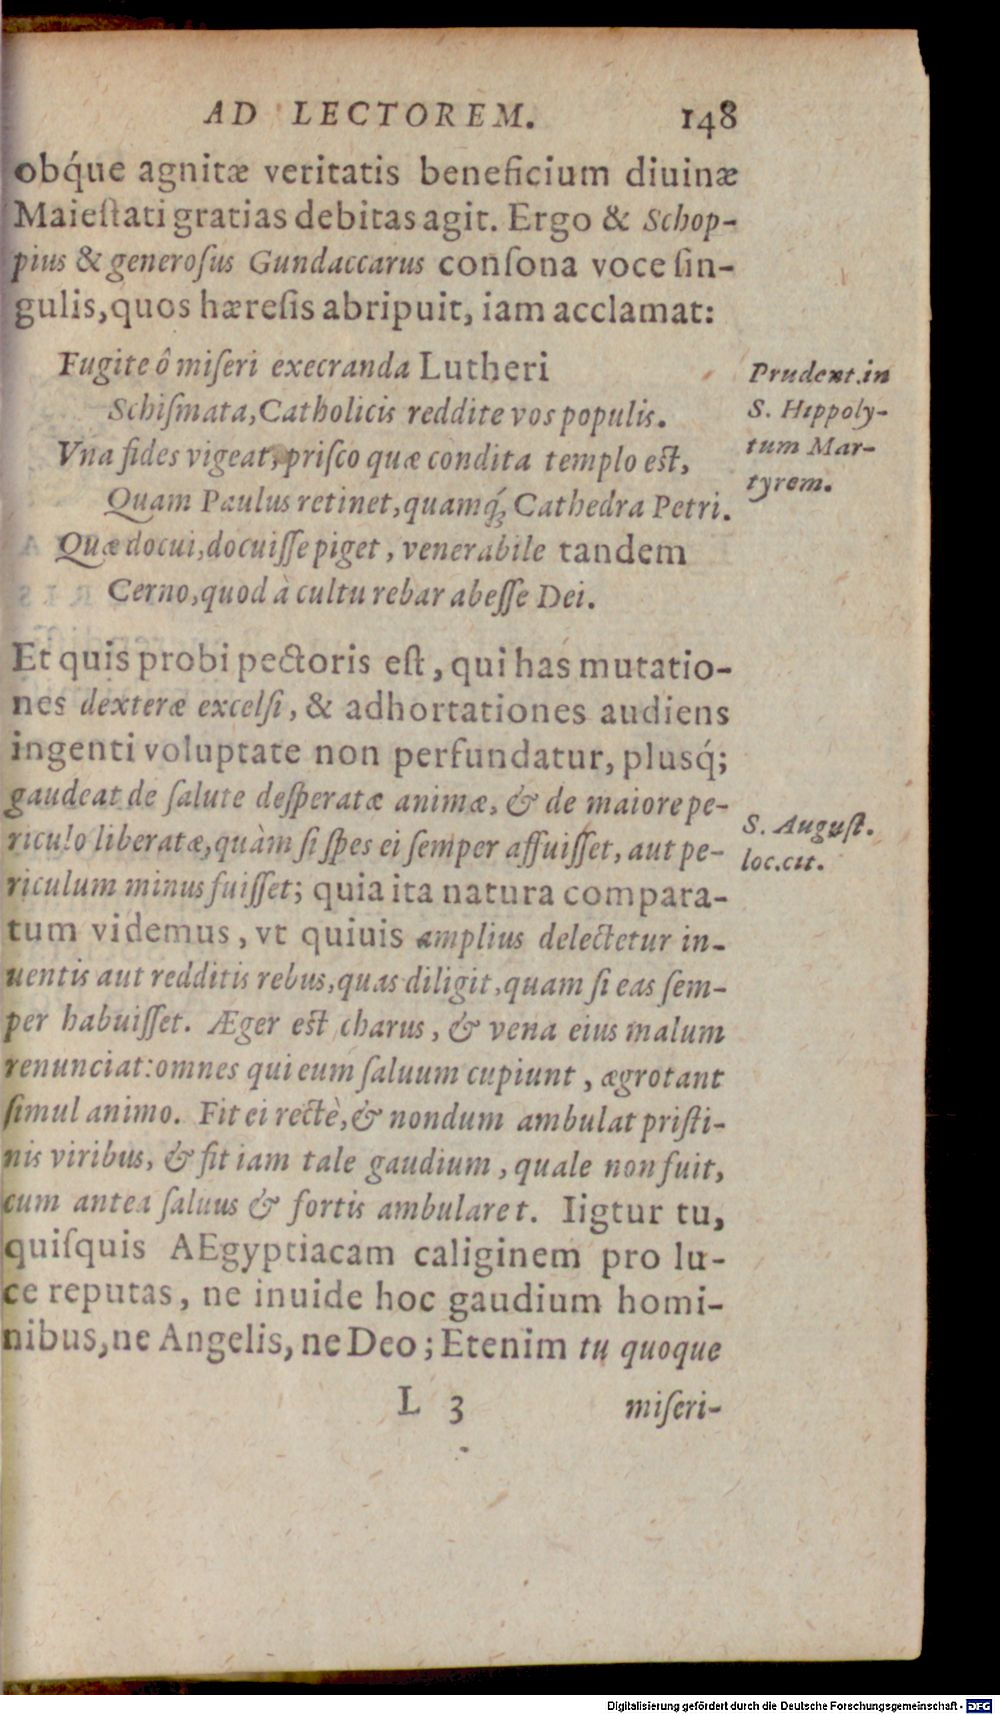 AD LECTOREM. 148
obq́ue agnitæ veritatis beneficium diuinæ
Maieſtati gratias debitas agit. Ergo & Schop-
pius & generoſus Gundaccarus conſona voce ſin-
gulis, quos hæreſis abripuit, iam acclamat:
Fugite ô miſeri execranda Lutheri
Schiſmata, Catholicis reddite vos populis.
Vna fides vigeat, priſco quæ condita templo eſt,
Quam Paulus retinet, quamq́; Cathedra Petri.
Quæ docui, docuiſſe piget, venerabile tandem
Cerno, quod à cultu rebar abeſſe Dei.
Prudent. in
S. Hippoly-
tum Mar-
tyrem.
Et quis probi pectoris eſt, qui has mutatio-
nes dexteræ excelſi, & adhortationes audiens
ingenti voluptate non perfundatur, pluſq́;
gaudeat de ſalute deſperatæ animæ, & de maiore pe-
riculo liberatæ, quàm ſi ſpes ei ſemper affuiſſet, aut pe-
riculum minus fuiſſet; quia ita natura compara-
tum videmus, vt quiuis amplius delectetur in-
uentis aut redditis rebus, quas diligit, quam ſi eas ſem-
per habuiſſet. Æger eſt charus, & vena eius malum
renunciat: omnes qui eum ſaluum cupiunt, ægrotant
ſimul animo. Fit ei rectè, & nondum ambulat priſti-
nis viribus, & fit iam tale gaudium, quale non fuit,
cum antea ſaluus & fortis ambularet. Iigtur tu,
quiſquis AEgyptiacam caliginem pro lu-
ce reputas, ne inuide hoc gaudium homi-
nibus, ne Angelis, ne Deo; Etenim tu quoque
S. Auguſt.
loc. cit.
L 3 miſeri-
Digitalisierung gefördert durch die Deutsche Forschungsgemeinschaft - DFG